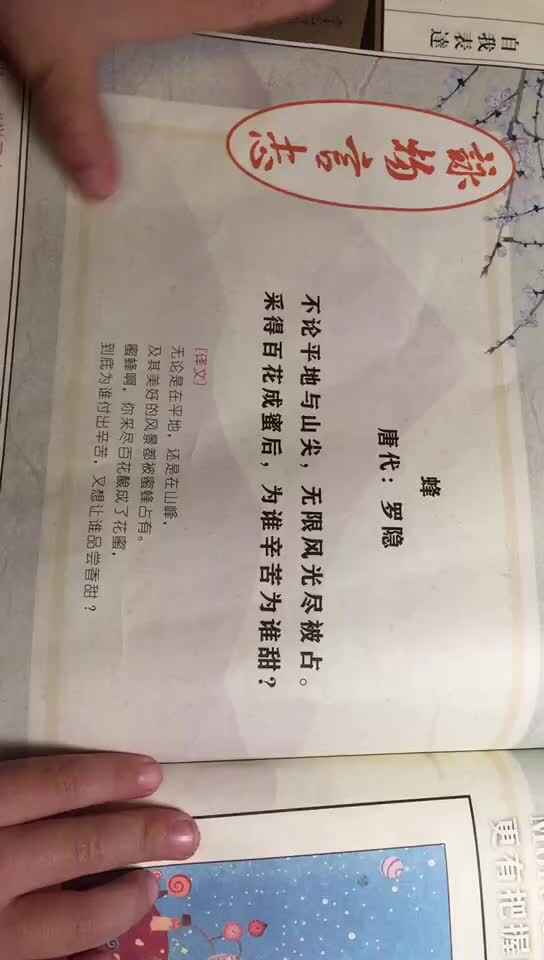 自我表達
詠物言志
蜂
唐代：罗隐
不论平地与山尖，无限风光尽被占。
采得百花成蜜后，为谁辛苦为谁甜？
［译文］
无论是在平地，还是在山峰，
及其美好的风景都被蜜蜂占有。
蜜蜂啊，你采尽百花酿成了花蜜，
到底为谁付出辛苦，又想让谁品尝香甜？
更有把握